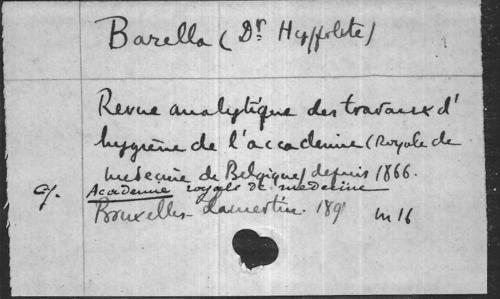 Barella (Dr Hyppolite)
Revue analytique des travaux d'
hygiène de l'accademie (Royale de
medecine de Belgique) depuis 1866.
cf. Academie royale de medecine
Bruxelles - Lamertin. 189 in 16